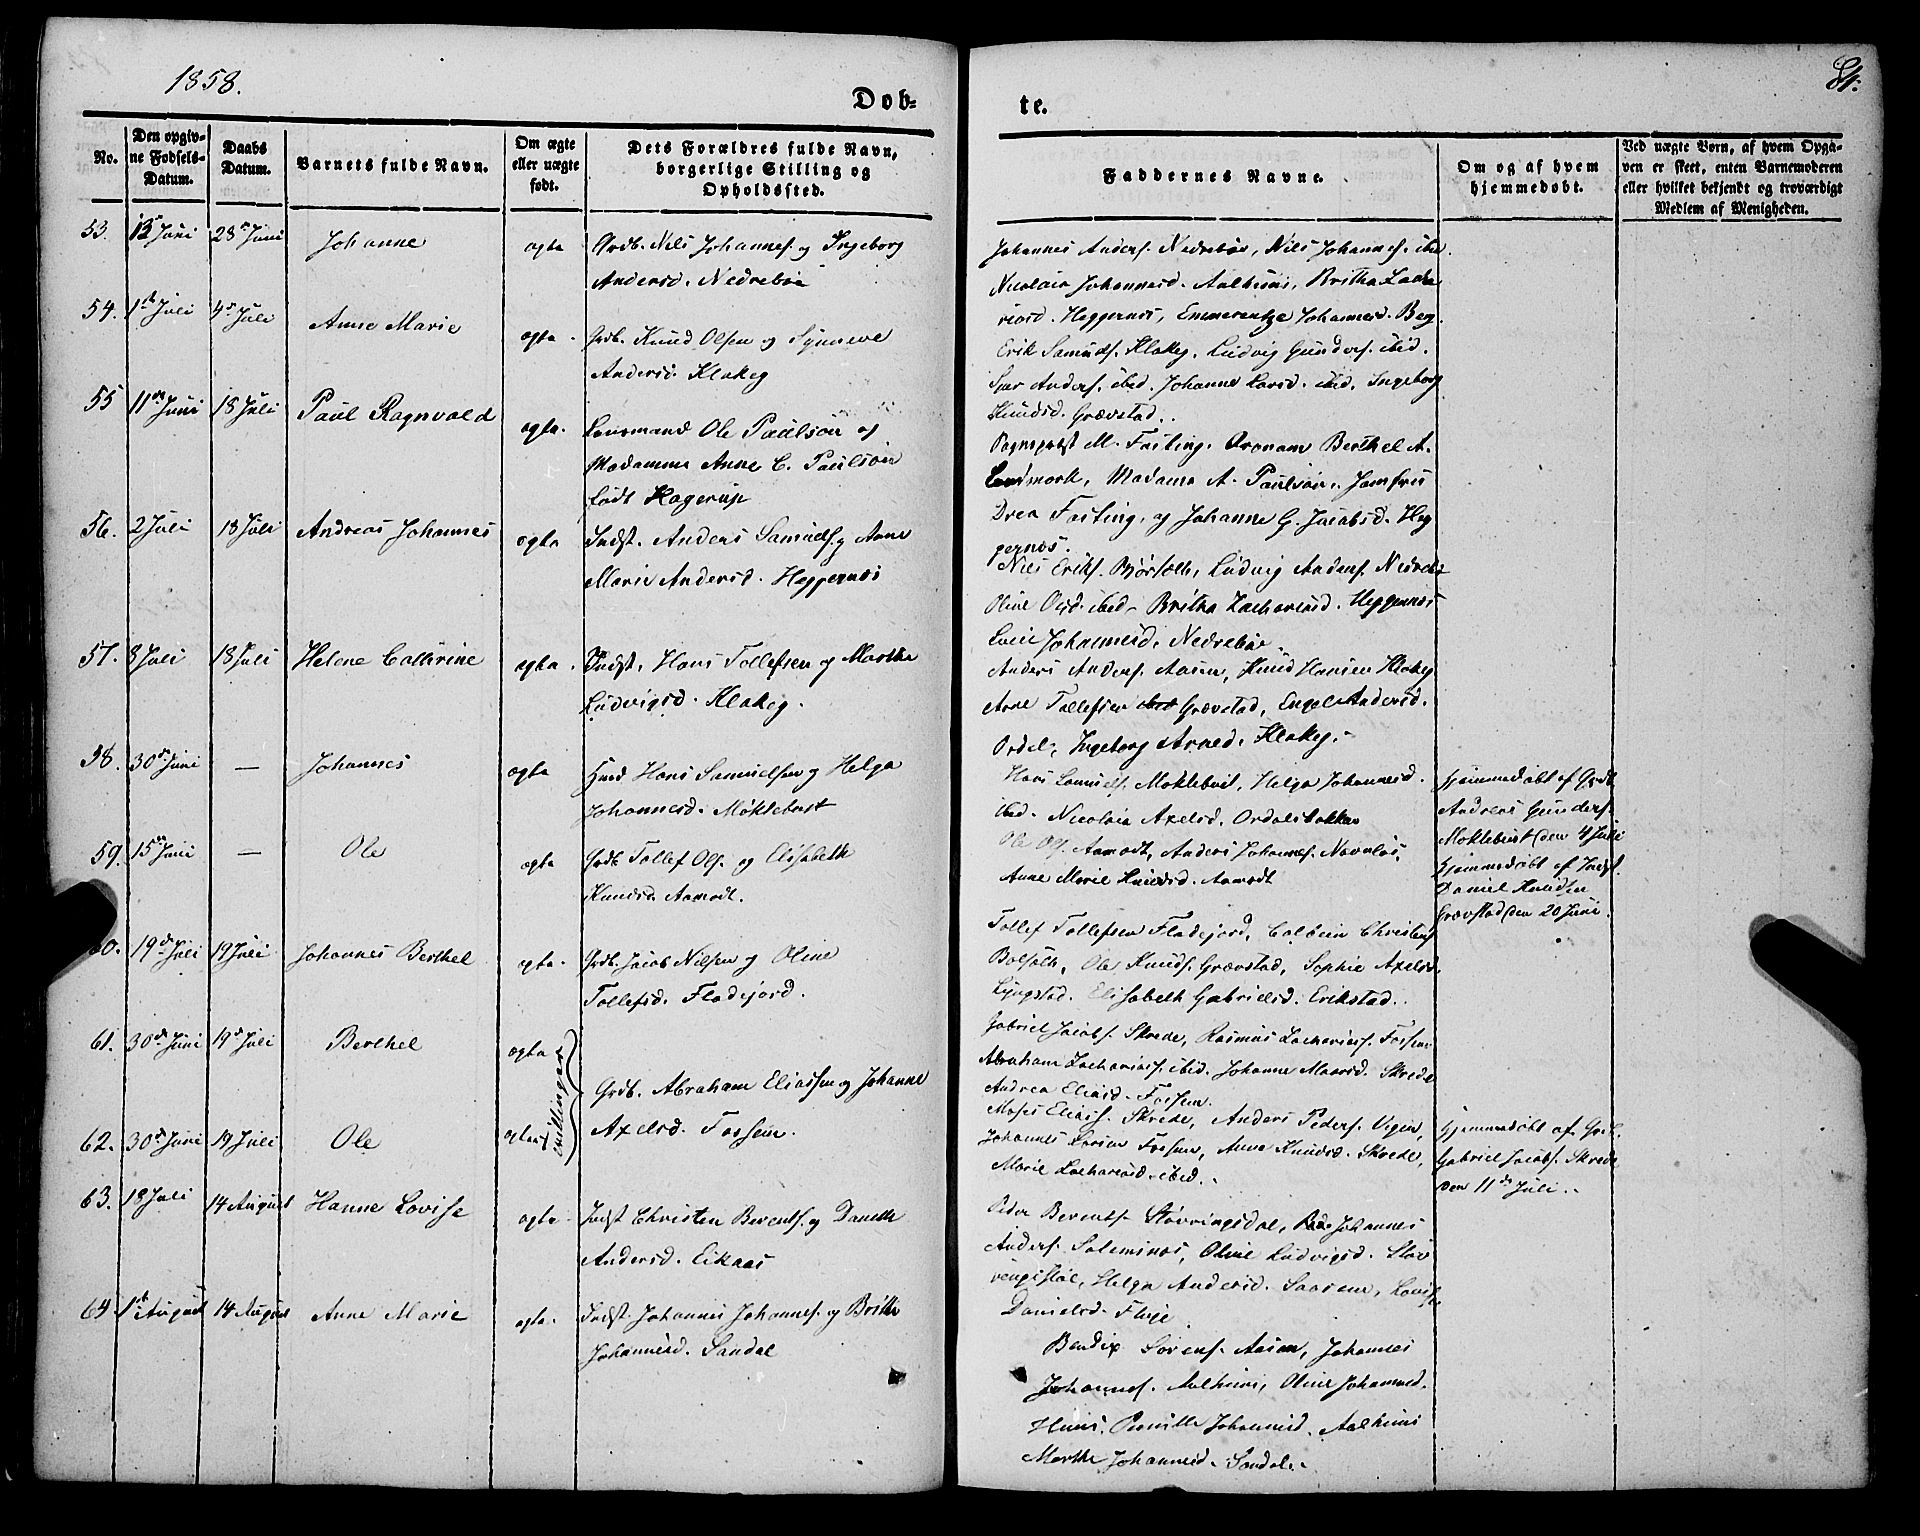 1858.
81.
Døb-
te.
No.
Den opgiv-
ne Fødsels-
Datum.
Daabs
Datum.
Barnets fulde Navn.
Om ægte
eller uægte
født.
Dets Forældres fulde Navn,
borgerlige Stilling og
Opholdssted.
Faddernes Navne.
Om og af hvem
hjemmedøbt.
Ved uægte Børn, af hvem Opga-
ven er skeet, enten Barnemoderen
eller hvilket bekjendt og troværdigt
Medlem af Menigheden.
53. Juni 28 Juni Johanne ægte Grdb. Nils Johannes. og Ingeborg
Andersd. Nedrebøe
Johannes Anders. Nedrebøe, Nils Johannes. ibd
Nicolaia Johannesd. Aalhuus, Britha Zacha
riasd. Heggernes, Emmerentze Johannesd. Berg.
54. 1ste Juli 4de Juli Anne Marie ægte. Grdb. Knud Olsen og Synneve
Andersd. Klakeg
Erik Samuels. Klakeg, Ludvig Gunders. ibid.
Sjur Anders. ibid. Johanne Larsd. ibid. Ingeborg
Knudsd. Grævstad.
55 11de Juni 18 Juli Paul Ragnvald ægte. Lensmand Ole Paulson og
Madamme Anne C. Paulson
født Hagerup
Sognepræst M. Fasting, Berthel A.
Landmark, Madame A. Paulson, Jomfru
Drea Fasting, og Johanne G. Jacobsd. Heg
gernes.
56. 2 Juli 18 Juli Andreas Johannes ægte Indst. Anders Samuels. og Anne
Marie Andersd. Heggernes
Nils Eriks. Bjørsæth, Ludvig Anders. Nedrebø
Oline Olsd. ibid. Britha Zachariasd. Heggernes
Johannesd. Nedrebøe.
57. 8 Juli 18 Juli Helene Cathrine ægte Indst. Hans Tollefsen og Marthe
Ludvigsd. Klakeg.
Anders Anders. Aasen, Knud Hansen Klakeg
Arne Tollefsen ibid Grævstad, Engel Andersd.
Ordal, Ingeborg Arned. Klakeg.
58. 30de Juni — Johannes ægte Hmd Hans Samuelsen og Helga
Johannesd. Møklebust
Hans Samuels. Møklebust, Helga Johannesd.
ibid. Nicolaia Axelsd. Ordalsbakken
Hjemmedøbt af Grdb.
Andreas Gunders.
Møklebust den 4 Juli
59. 15de Juni — Ole ægte Grdb Tollef Ols. og Elisabeth
Knudsd. Aamodt.
Ole Ols. Aamodt, Anders Johannes. Navnløs,
Anne Marie Knudsd. Aamodt
Hjemmedøbt af Indst.
Daniel Knudsen
Grævstad den 20 Juni.
60. 19de Juli 19 Juli Johannes Berthel ægte Grdb. Jacob Nilsen og Oline
Tollefsd. Fladejord.
Tollef Tollefsen Fladejord, Christens.
Bolsæth, Ole Knuds. Grævstad, Sophie Axelsd.
Lyngstad. Elisabeth Gabrielsd. Erikstad.
61. 30de Juni 19de Juli Berthel ægte Tvillinger Grdb. Abraham Eliassen og Johanne
Axelsd. Fossem.
Gabriel Jacobs. Skrede, Rasmus Zacharias. Fossem
Abraham Zacharias. ibid. Johanne Skrede
Andrea Eliasd. Fossem.
62. 30de Juni 19 Juli Ole ægte
Moses Elias. Skrede, Anders Peders. Vigen,
Johannes Larsen Fossem, Anne Knudsd. Skrede,
Marie Zachariasd. ibid.
Hjemmedøbt af Grdb.
Gabriel Jacobs. Skrede
den 11de Juli.
63. 18 Juli 14 August Hanne Lovise ægte. Indst Christen Berents. og Danette
Andersd. Eikaas
Peder Berents. Støvringsdal, Johannes
Anders. Solemnes, Oline Ludvigsd. Støv
ringsdal, Helga Andersd. Lovise
Danielsd. Fluge
64. 1ste August 14 August Anne Marie ægte. Indst Johannes Johannes. og Brithe
Johannesd. Sandal
Bendix Sørens. Aasen, Johannes
Johannes. Aalhuus, Oline Johannesd.
Huus. Pernille Johannesd. Aalhuus
Marthe Johannesd. Sandal.